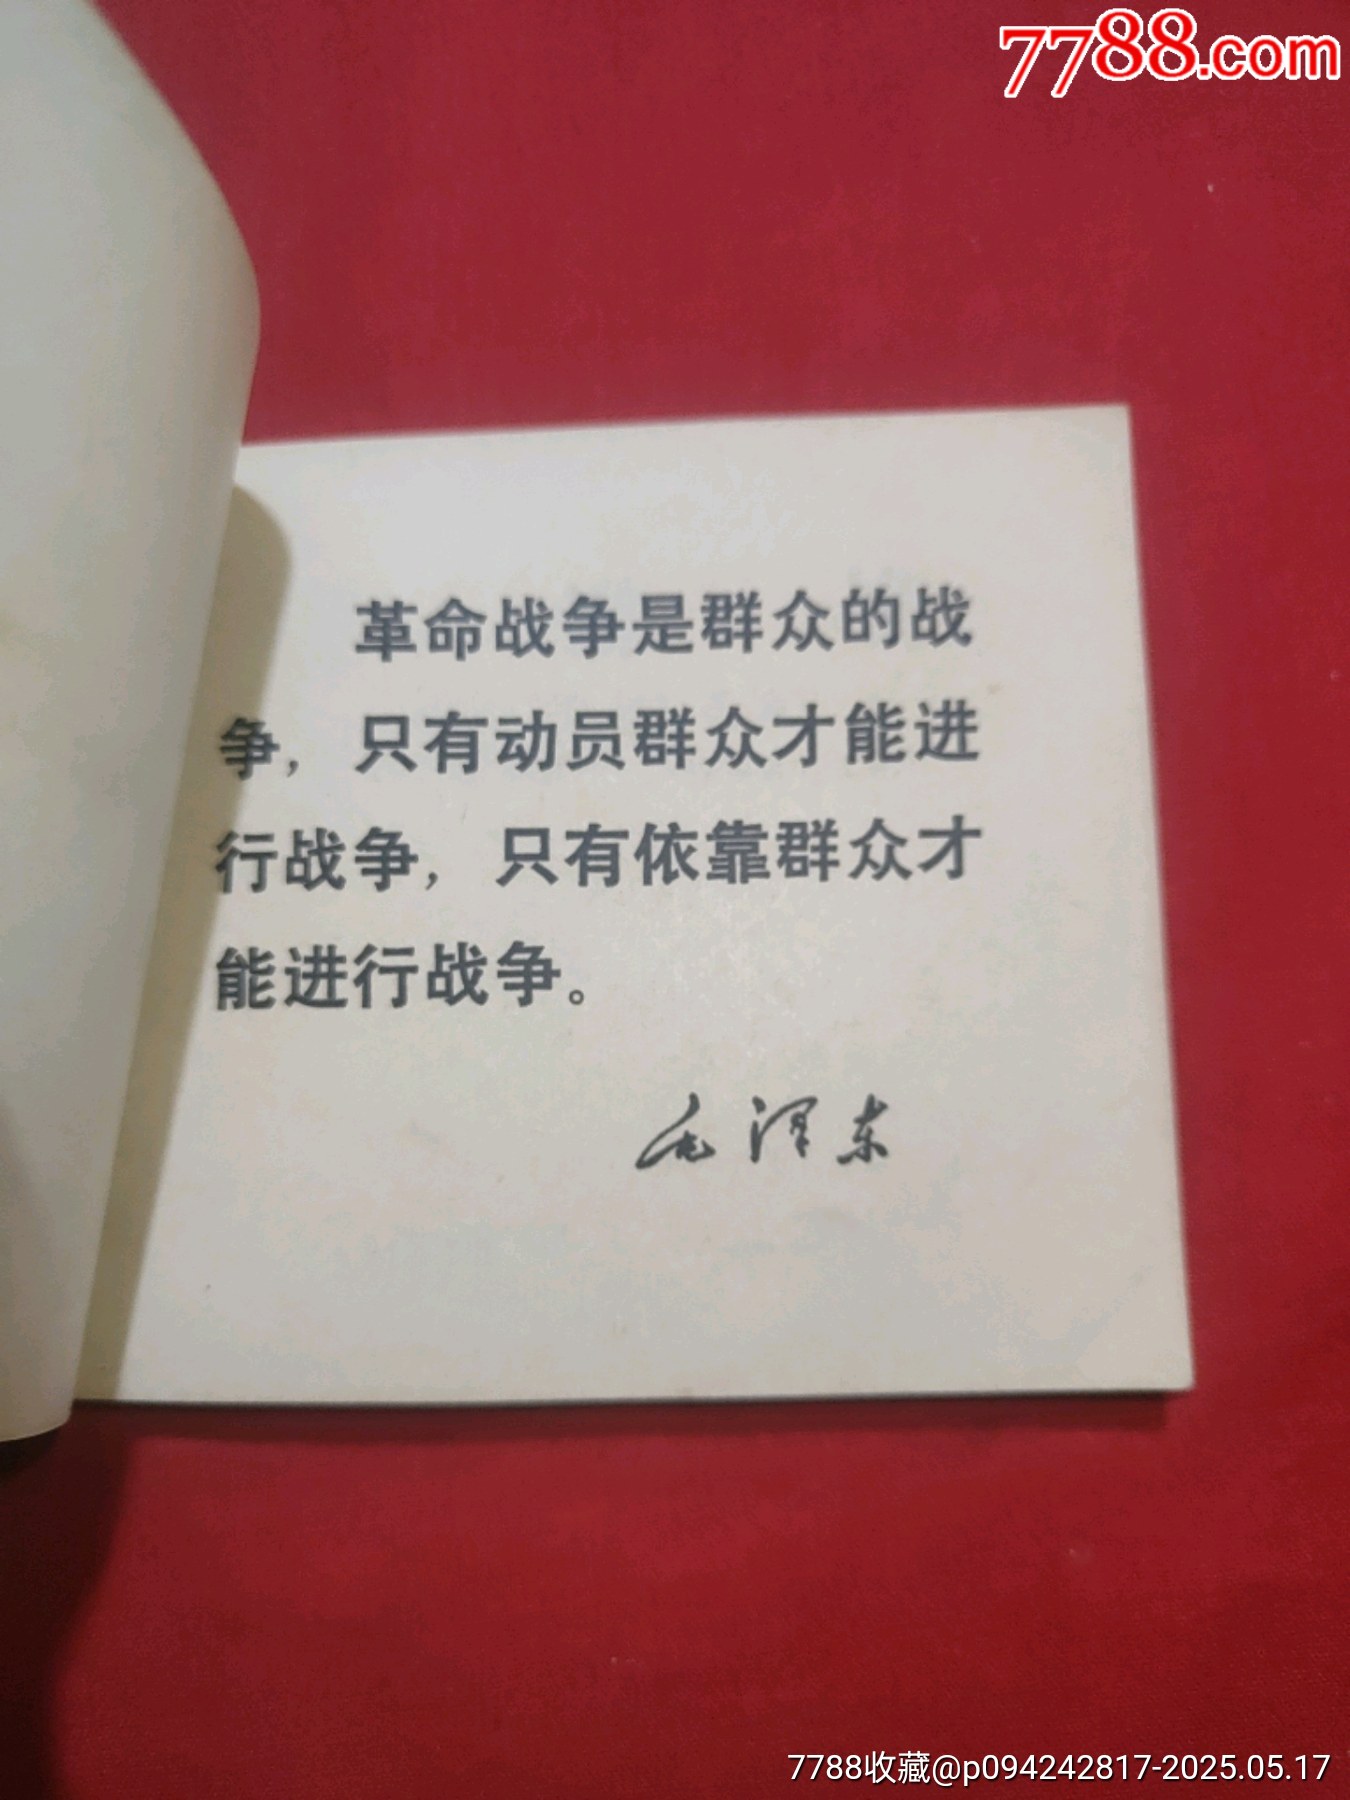 7788.com
革命战争是群众的战
争，只有动员群众才能进
行战争，只有依靠群众才
能进行战争。
毛泽东
7788收藏@p094242817-2025.05.17